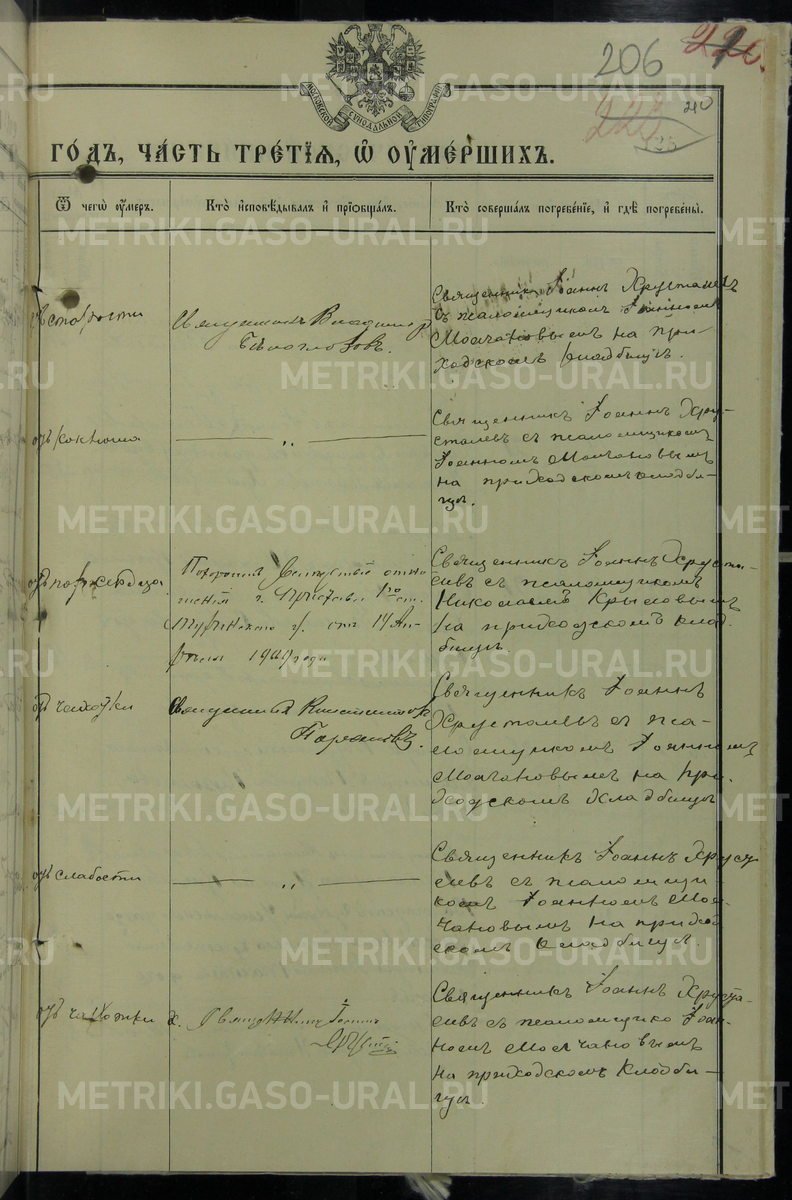 206
226.
240
МОСКОВСКОЙ СѴНОДАЛЬНОЙ ТИПОГРАФІИ
го́дъ, ча́сть тре́тїѧ, ѡ҆ ᲂу҆ме́ршихъ.
Ѿ чегѡ̀ ᲂу҆́меръ.
Кто̀ и҆сповѣ́дывалъ и҆ прїѡбща́лъ.
Кто̀ соверша́лъ погребе́нїе, и҆ гдѣ̀ погребены̀.
отъ старости
Священникъ Владимир
Бѣлоглазовъ.
Священникъ Іоаннъ Хрусталевъ
съ псаломщикомъ Іоанномъ
Молчановымъ на при-
ходскомъ кладбищѣ.
отъ коклюша
— „ —
Священникъ Іоаннъ Хру-
сталевъ съ псаломщикомъ
Іоанномъ Молчановымъ
на приходскомъ кладби-
щѣ.
отъ
Похороненъ отно
шенія г. Пристава 1го ст.
Туринскаго у. отъ 14 Ап-
рѣля года
Священникъ Іоаннъ Хруста-
левъ съ псаломщикомъ
Николаемъ Крыловымъ
на приходскомъ клад-
бищѣ.
отъ чахотки
Священникъ Константинъ
Священникъ Іоаннъ
Хрусталевъ съ пса-
ломщикомъ Іоанномъ
Молчановымъ на при-
ходскомъ кладбищѣ
отъ слабости
— „ —
Священникъ Іоаннъ Хруста
левъ съ псаломщи-
комъ Іоанномъ Мол-
чановымъ на приход
скомъ кладбищѣ.
отъ чахотки
Священникъ Іоаннъ
Хруст
Священникъ Іоаннъ Хруста-
левъ съ псаломщико Іоан-
номъ Молчановымъ
на приходскомъ кладби-
щѣ.
METRIKI.GASO-URAL.RU